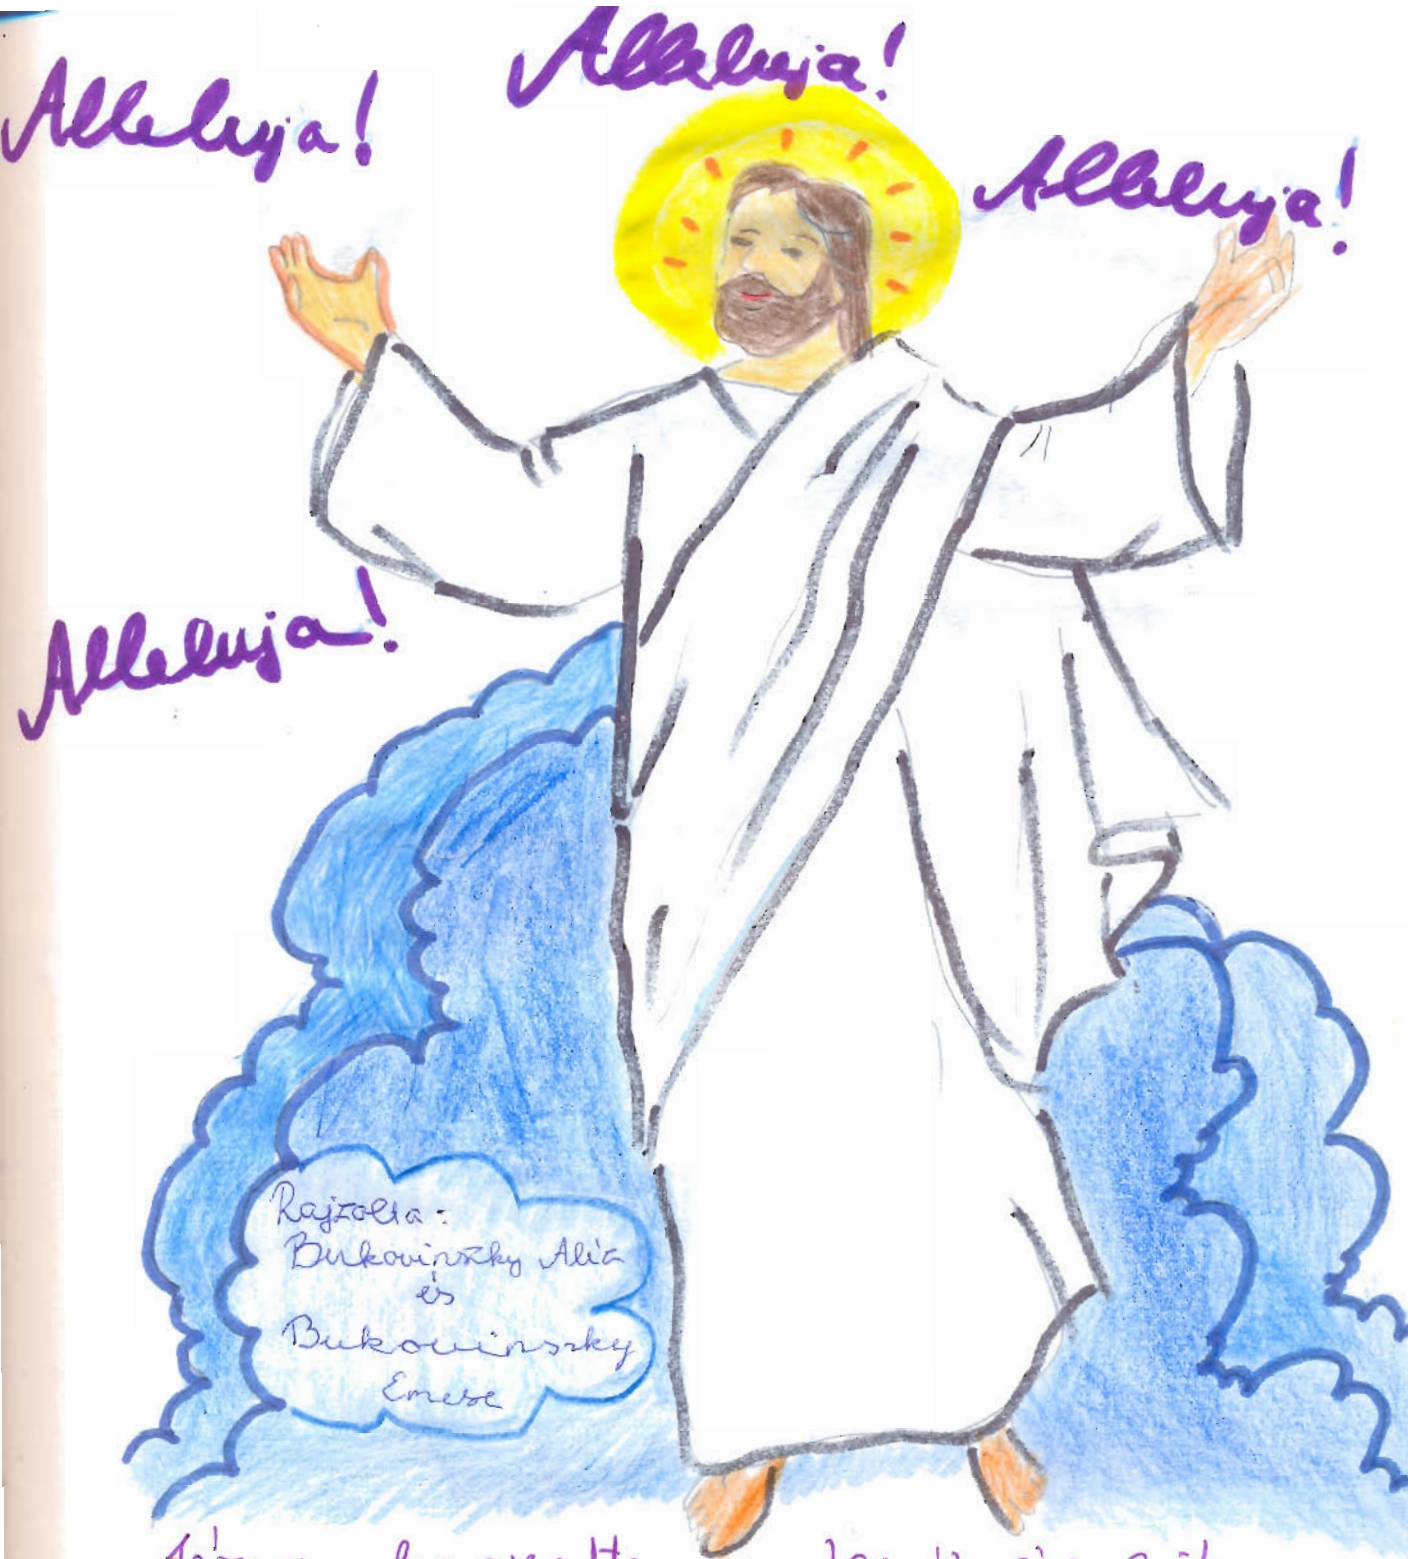 Alleluja!
Alleluja!
Alleluja!
Alleluja!
Rajzolta:
Bukovinszky
és
Bukovinszky
Emese